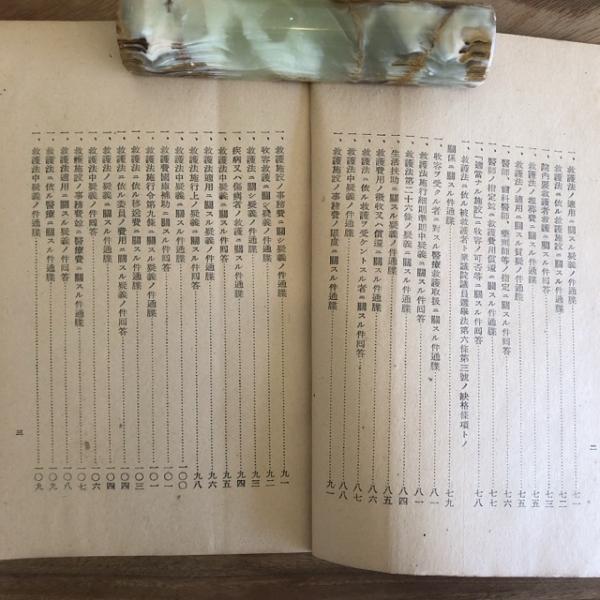 一、救護法ノ適用ニ關スル件回答……七一
一、救護法ニ依ル救護施設ニ關スル件通牒……七二
一、院內救護者ノ葬儀ニ關スル件回答……七三
一、救護法ノ埋葬ニ關スル件通牒……七五
一、救護法ノ適用ニ關スル質疑ノ件通牒……七五
一、醫師、齒科醫師、藥劑師等ノ指定ニ關スル件回答……七六
一、醫師ノ指定竝ニ救護費用償還ニ關スル件通牒……七七
一、「適當ナル施設」ニ收容ノ可否等ニ關スル件回答……七八
一、救護法ニ依ル被救護者ト衆議院議員選擧法第六條第三號ノ缺格條項トノ
關係ニ關スル件通牒……七九
一、收容ヲ受クル者ニ對スル醫療救護取扱ニ關スル件通牒……八一
一、救護法施行細則準則中疑義ニ關スル件回答……八一
一、救護法第二十六條ノ疑義ニ關スル件通牒……八四
一、生活扶助ニ關スル疑義ノ件通牒……八五
一、救護費用ノ徵收又ハ償還ニ關スル件通牒……八六
一、救護法ニ依ル救護ヲ受ケントスル者ニ關スル件通牒……八七
一、救護法適用ニ關スル件通牒……八八
一、救護施設ノ事務費ノ限度ニ關スル件通牒……九一
二
一、救護施設ノ事務費ニ關シ疑義ノ件通牒……九一
一、收容救護ニ關シ疑義ノ件通牒……九二
一、救護法ニ關シ疑義ノ件通牒……九三
一、疾病又ハ傷病者ノ救護ニ關スル件通牒……九四
一、救護法中疑義ニ關スル件回答……九五
一、救護法適用ニ關スル疑義ノ件通牒……九六
一、救護法施行上ノ疑義ニ關スル件通牒……九八
一、救護費國庫補助ニ關スル件回答……一〇〇
一、救護法施行令第九條ニ關スル疑義ノ件回答……一〇一
一、救護法ニ依ル移送費ニ關スル件通牒……一〇三
一、救護法ニ依ル委員ノ費用ニ關スル件通牒……一〇四
一、救護法中疑義ニ關スル件通牒……一〇四
一、救護法中疑義ノ件回答……一〇六
一、救護施設ノ事務費竝ニ醫療費ニ關スル件通牒……一〇七
一、救護法適用ニ關スル疑義ノ件回答……一〇八
一、救護法ニ依ル醫療ニ關スル件通牒……一〇九
一、救護法中疑義ノ件通牒……一〇九
三